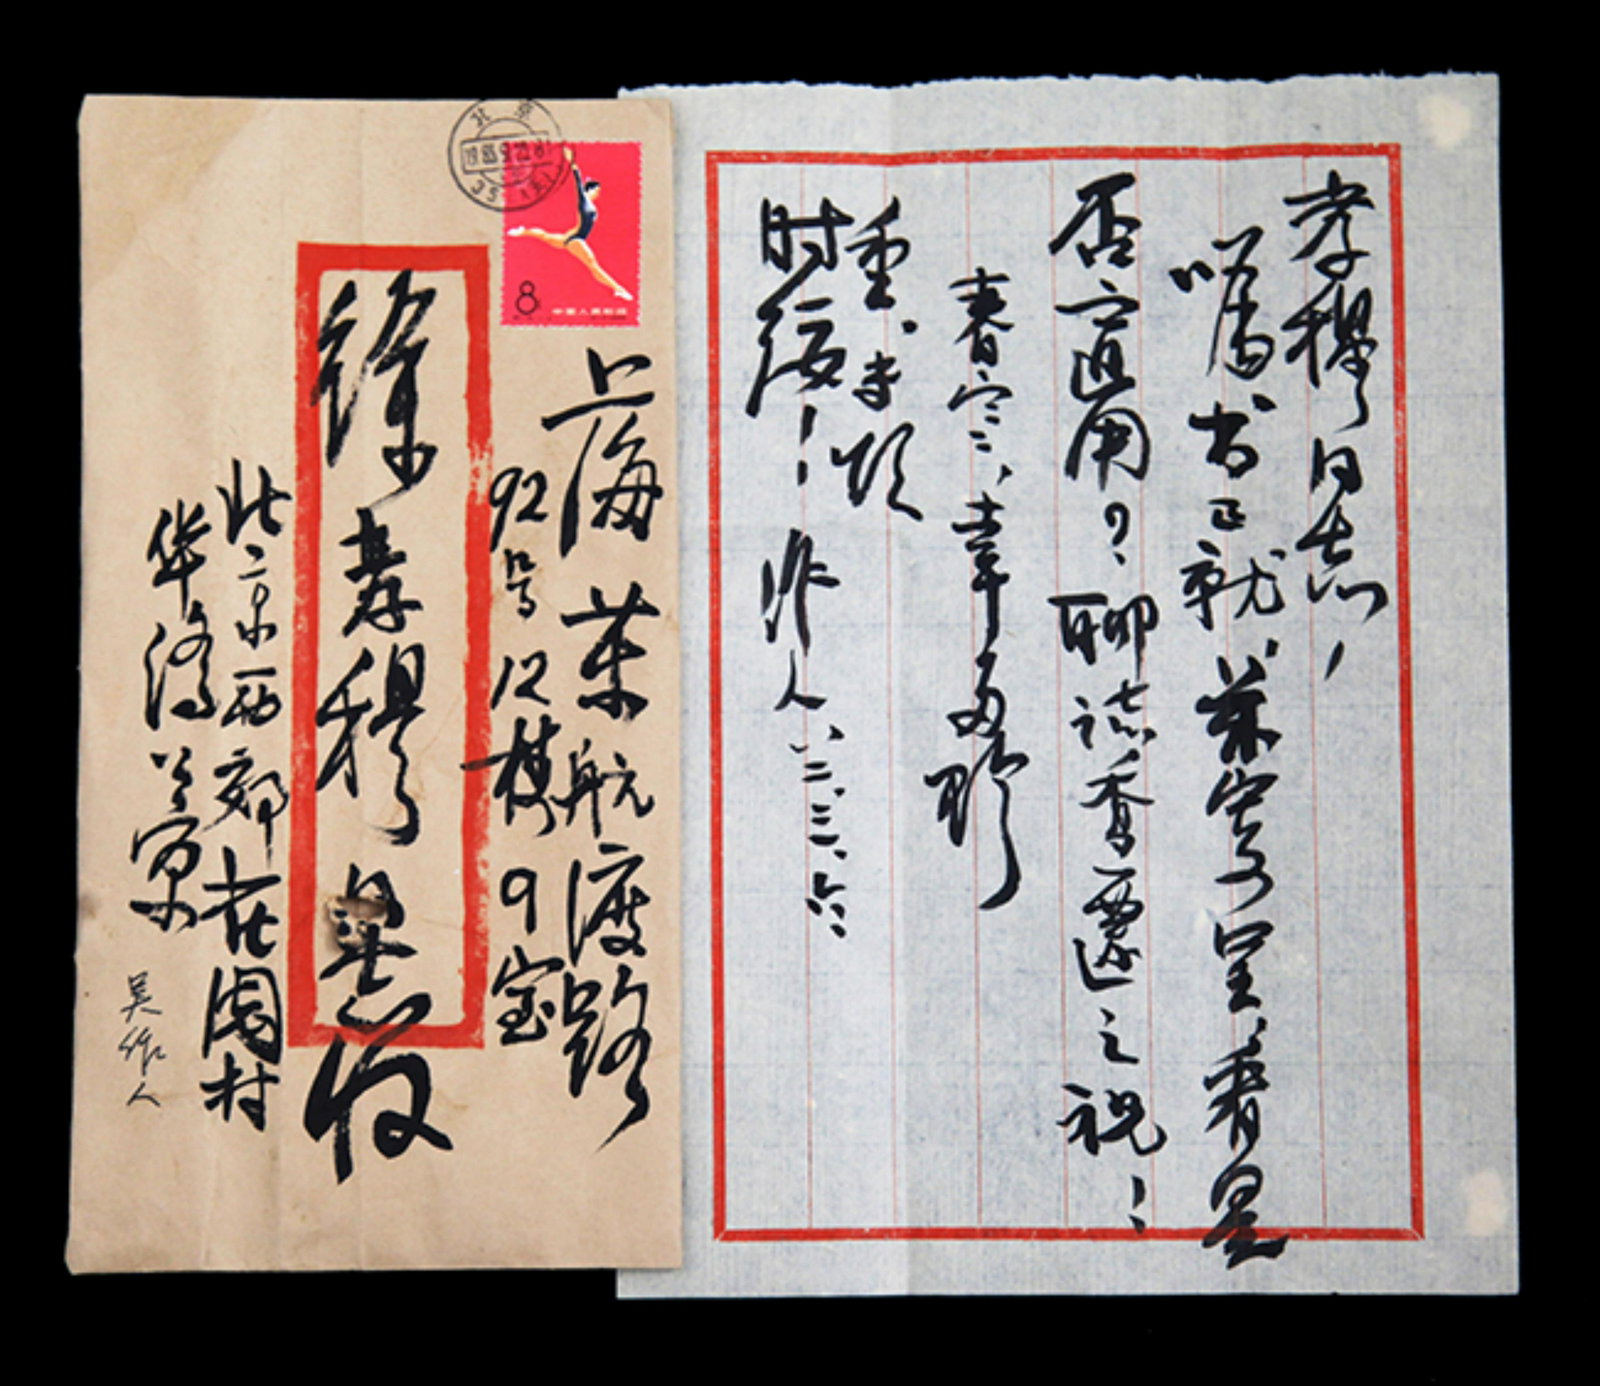 孝穆同志：
嘱书正就，兹寄呈，看是
否适用？聊志乔迁之祝！
春节，幸勿
重，专颂
时绥！ 作人 八二、三、六
上海 万航渡路
92号12楼9室
徐孝穆同志收
北京西郊花园村
华侨公寓
吴作人
北京
8
中国人民邮政